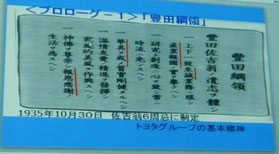 <プロローグ-1>「豊田綱領」
豊田綱領
豊田佐吉翁ノ遺志ヲ體シ
一、上下一致、至誠業務ニ服シ
産業報國ノ實ヲ擧グベシ
一、研究ト創造ニ心ヲ致シ
常ニ時流ニ先ンズベシ
一、華美ヲ戒メ、質實剛健タルベシ
一、温情友愛ノ精神ヲ發揮シ
家庭的美風ヲ作興スベシ
一、神佛ヲ尊崇シ、報恩感謝ノ
生活ヲ爲スベシ
1935年10月30日 佐吉翁6 忌に制定
トヨタグループの基本精神